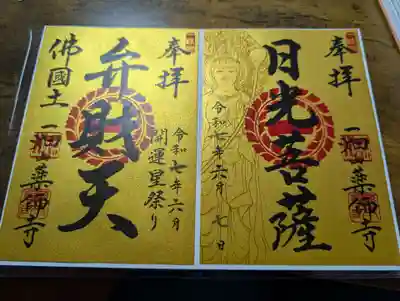 奉拝
一畑薬師寺
日光菩薩
令和七年六月七日
奉拝
令和七年六月
開運星祭り
弁財天
佛國土
一畑薬師寺